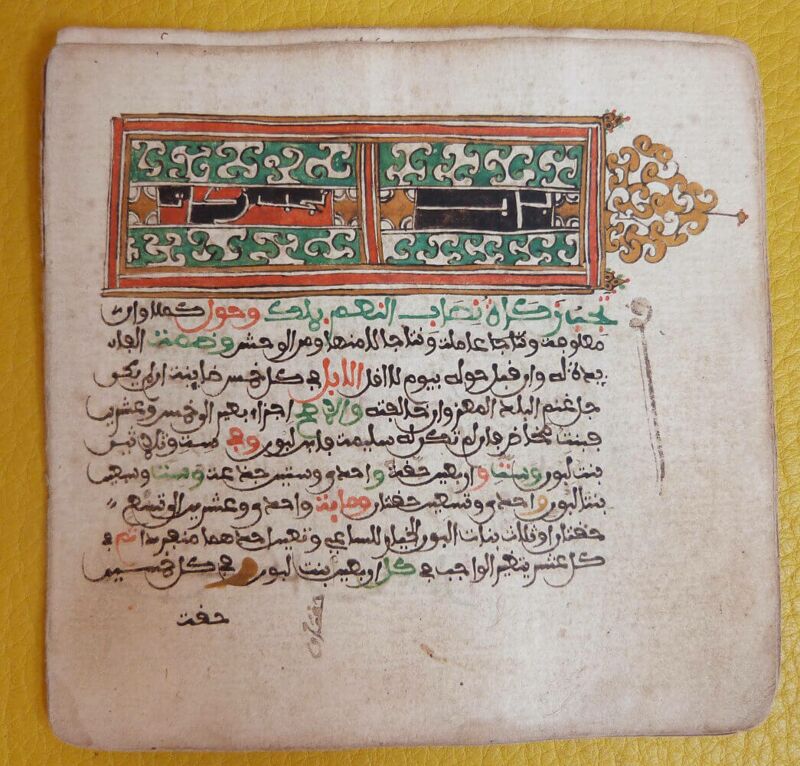 باب تجب زكاة
تجب زكاة نصاب النعم بملك وحول كملا وان
معلوفة ونتاجا عاملة ونتاجا لا منها ومن الوحش وضمت الفاي
يدة له وان قبل حوله بيوم لا لاقل الابل في كل خمس ضاينة ان لم يكن
جل غنم البلد المعز وان خالفته والاصح اجزاء بعير الى خمس وعشرين
فبنت مخاض فان لم تكن له سليمة فابن لبون وفي ست وثلاثين
بنت لبون وست واربعين حقة واحدى وستين جذعة وست وسبعين
بنتا لبون واحدى وتسعين حقتان وماية واحدى وعشرين الى تسع
حقتان او ثلاث بنات لبون الخيار للساعي وتعين احدهما منفردا ثم في
كل عشر يتغير الواجب في كل اربعين بنت لبون وفي كل خمسين
حقة